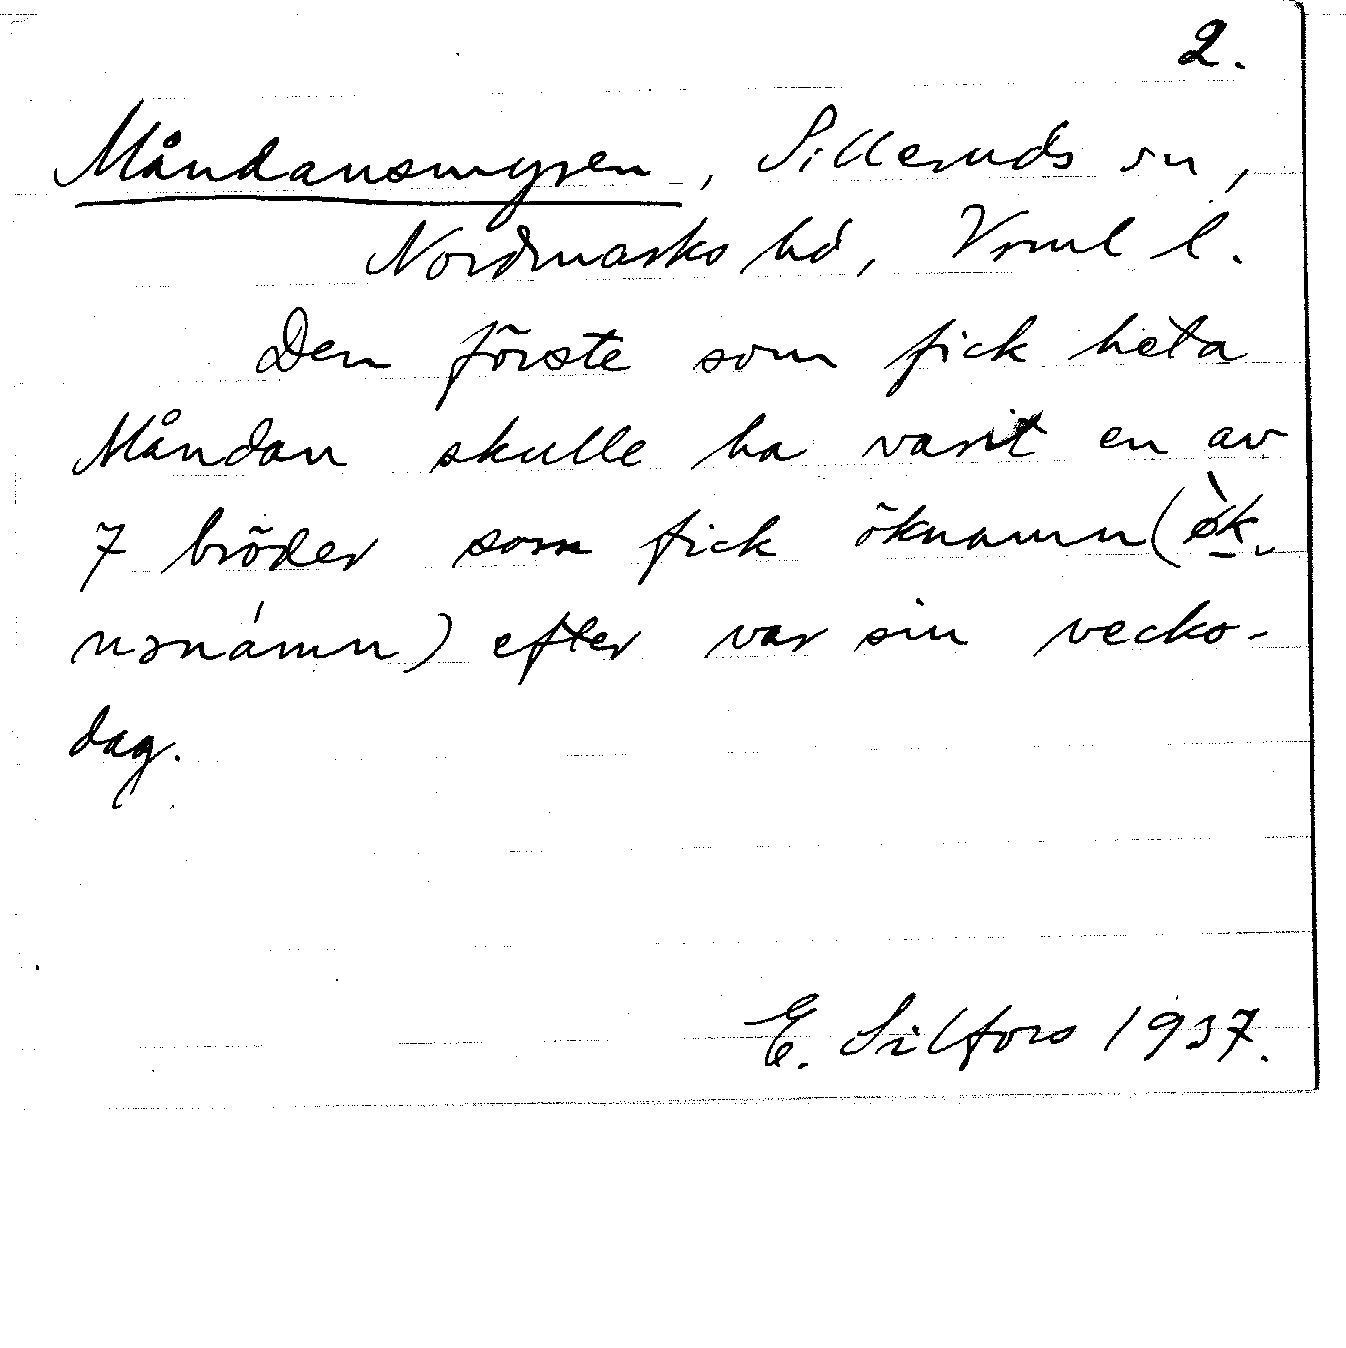 2.
Måndansmyren, Silleruds sn,
Nordmarks hd, Vrml l.
Den förste som fick heta
Måndan skulle ha varit en av
7 bröder som fick öknamn (
) efter var sin vecko-
dag.
E. Silfors 1937.